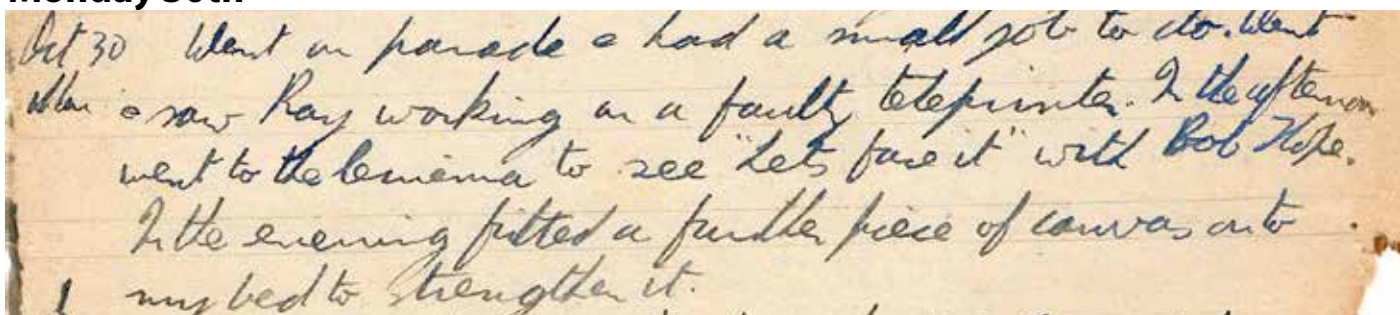 Monday 30th
Oct 30 Went on parade & had a small job to do. Went
Mon & saw Ray working on a faulty teleprinter. In the afternoon
went to the Ceniema to see "Lets face it" with Bob Hope.
In the evening fitted a further piece of canvas onto
my bed to strengthen it.